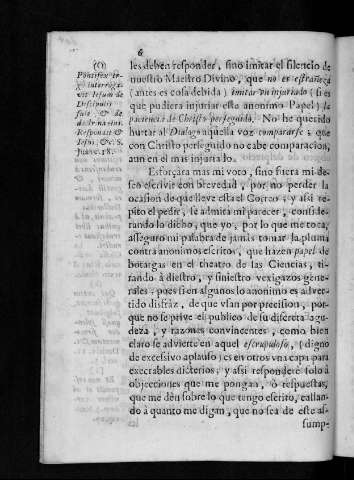 6
(O)
Pontifex er-
go interroga-
vit Iesum de
Discipulis
suis, & de
doctrina eius.
Respondit &
Iesus, &c. S.
Juan c. 18.
les deben responder, sino imitar el silencio de
nuestro Maestro Divino, que no es estrañeza
(antes es cosa debida) imitar vn injuriado (si es
que pudiera injuriar este anonimo Papel) la
paciencia de Christo perseguido. No he querido
hurtar al Dialogo aquella voz compararse; que
con Christo perseguido no cabe comparacion,
aun en el mas injuriado.
Esforçara mas mi voto, sino fuera mi de-
seo escrivir con brevedad, por no perder la
ocasion de que lleve esta el Correo; y assi re-
pito el pedir, se admita mi parecer, conside-
rando lo dicho, que yo, por lo que me toca,
asseguro mi palabra de jamàs tomar la pluma
contra anonimos escritos, que hazen papel de
botargas en el theatro de las Ciencias, ti-
rando à diestro, y siniestro vexigazos gene-
rales: pues si en algunos lo anonimo es adver-
tido disfràz, de que vsan por precision, por-
que no se prive el publico de su discreta agu-
deza, y razones convincentes, como bien
claro se advierte en aquel escrupuloso, (digno
de excesivo aplauso) es en otros vna capa para
execrables dicterios; y assi responderè solo à
objecciones que me pongan, ò respuestas,
que me dèn sobre lo que tengo escrito, callan-
do à quanto me digan, que no sea de este as-
sump-